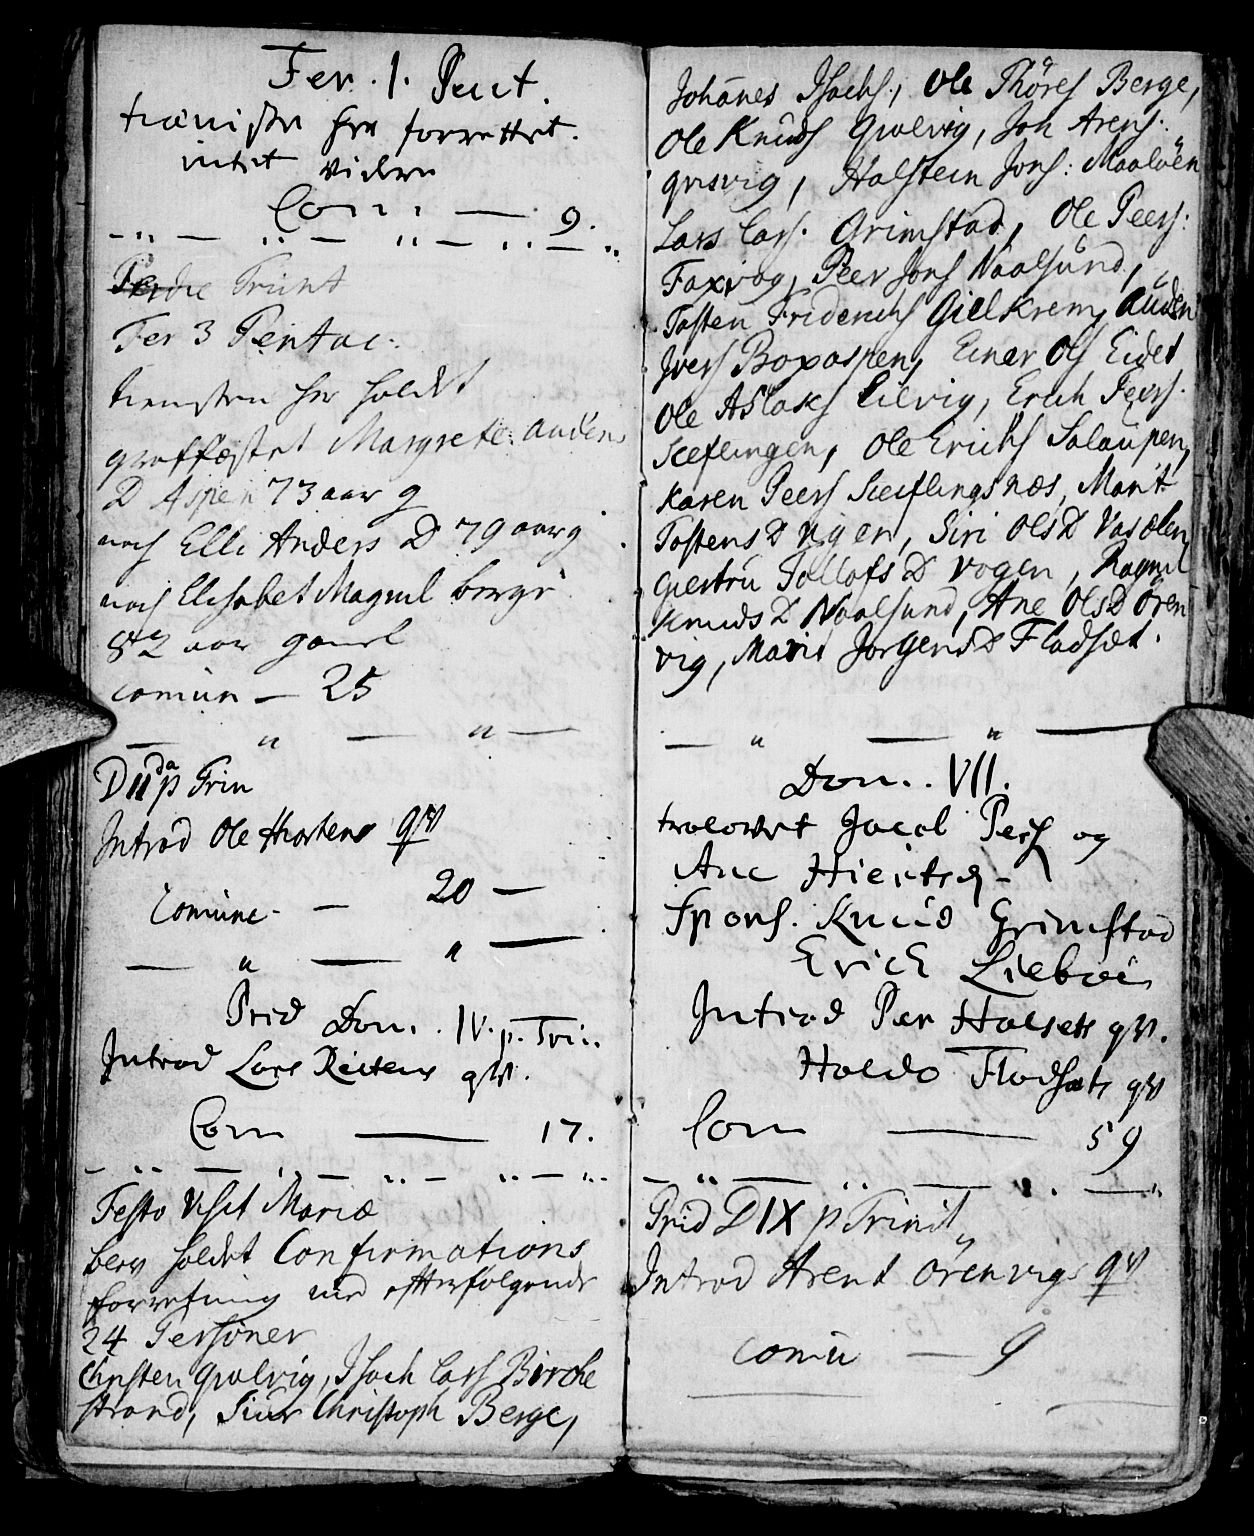 Fer. 1. Pent.
tienisten her forrettet.
intet videre
Com: — 9.
Feriæ Trinit
Fer 3 Pentac:
tienesten her holdet
graffæstet Margrete Anders
D Aspen 73 aar g
noch Elli Anders D 79 aar g
noch Elisabet Magnil berge
82 aar gamel
comun — 25
D II da p Trin
Introd Ole Hustens qv
Comune. — 20 —
Prid Dom. IV. p. Trin.
Introd Lars Reitens qv.
Com — 17.
Festo Visit Mariæ
blev holdet Confirmations
forretning med efterfølgende
24 Persohner
Christen Qvalvig, Isach Lars Birche
strand, Siur Christoph Berge,
Johanes Isachs., Ole Thores Berge,
Ole Knuds Qvalvig, Jon Arens:
qvisvig, Halstein Jons: Maaløen
Lars Lars. Grimstad, Ole Peers:
Faxvog, Peer Jons Naalsund,
Tosten Fridrichs Gielkrem, Auden
Ivers Boxaspen, Einar Ols Eidet
Ole Aslaks Eilvig, Erich Peers.
Sceflingen, Ole Erichs Salaupen,
Karen Peers Sceflingsnæs, Marit
Tostens D Nigen, Siri Ols D Vasølen
Giertru Tollofs D Vogen, Ragnil
Knuds D Naalsund, Ane Ols D Ören
vig, Marit Jørgens D Fladsæt.
Dom. VII.
trolovet Jacob Pers og
Ane
Spons. Knud Grimstad
Erich Liebøe
Introd Peer Halsets qv.
Haldo Flodsæts qv
Com — 59
Prid D IX p Trinit
Introd Arent Örenvigs qv
comu — 9